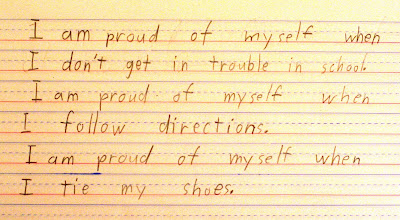 I am proud of myself when
I don't get in trouble in school.
I am proud of myself when
I follow directions.
I am proud of myself when
I tie my shoes.